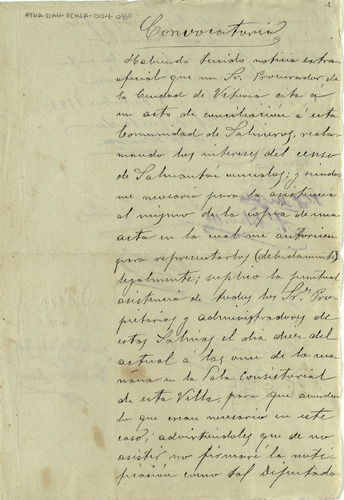 ATHA-DAH-FCHSA-004-080
1
Convocatoria
Habiendo tenido noticia extra
oficial que un Sr. Procurador de
la Ciudad de Vitoria cita a
un acto de conciliación á esta
Comunidad de Salineros, recla-
mando los intereses del censo
de Salmantón vencidos; y siendo
me necesario para la asistencia
al mismo de la copia de una
acta en la cual me autoricen
para representarlos (debidamente)
legalmente; suplico la puntual
asistencia de todos los Sres. Pro-
pietarios y administradores de
estas Salinas el dia diez del
actual á las once de la ma-
ñana en la Sala Consistorial
de esta Villa, para que acuerden
lo que crean necesario en este
caso; advirtiendoles que de no
asistir no firmaré la noti-
ficación como tal Diputado